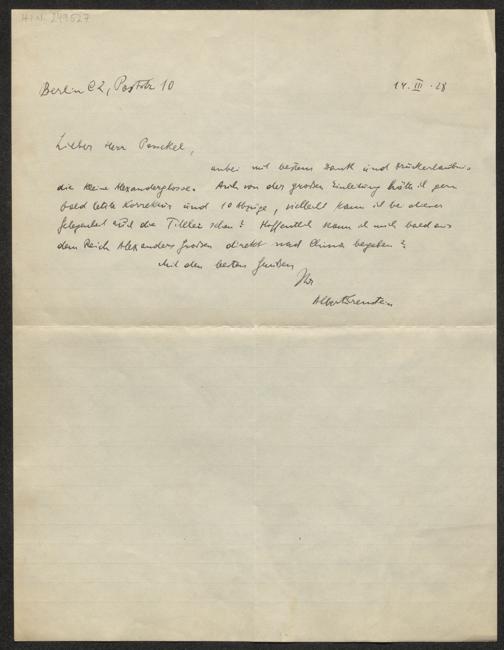 H.I.N. 249527
Berlin C2, Poststr 10 14. III. 28
Lieber Herr
anbei mit bestem Dank und Druckerlaubnis
die kleine Alexanderglosse. Auch von der großen Einleitung hätt ich gern
bald letzte Korrektur und 10 Abzüge, vielleicht kann ich bei dieser
Gelegenheit auch die Titelei sehn? Hoffentlich kann ich mich bald aus
dem Reich Alexanders Großen direkt nach China begeben?
Mit den besten Grüßen
Ihr
Albert Ehrenstein